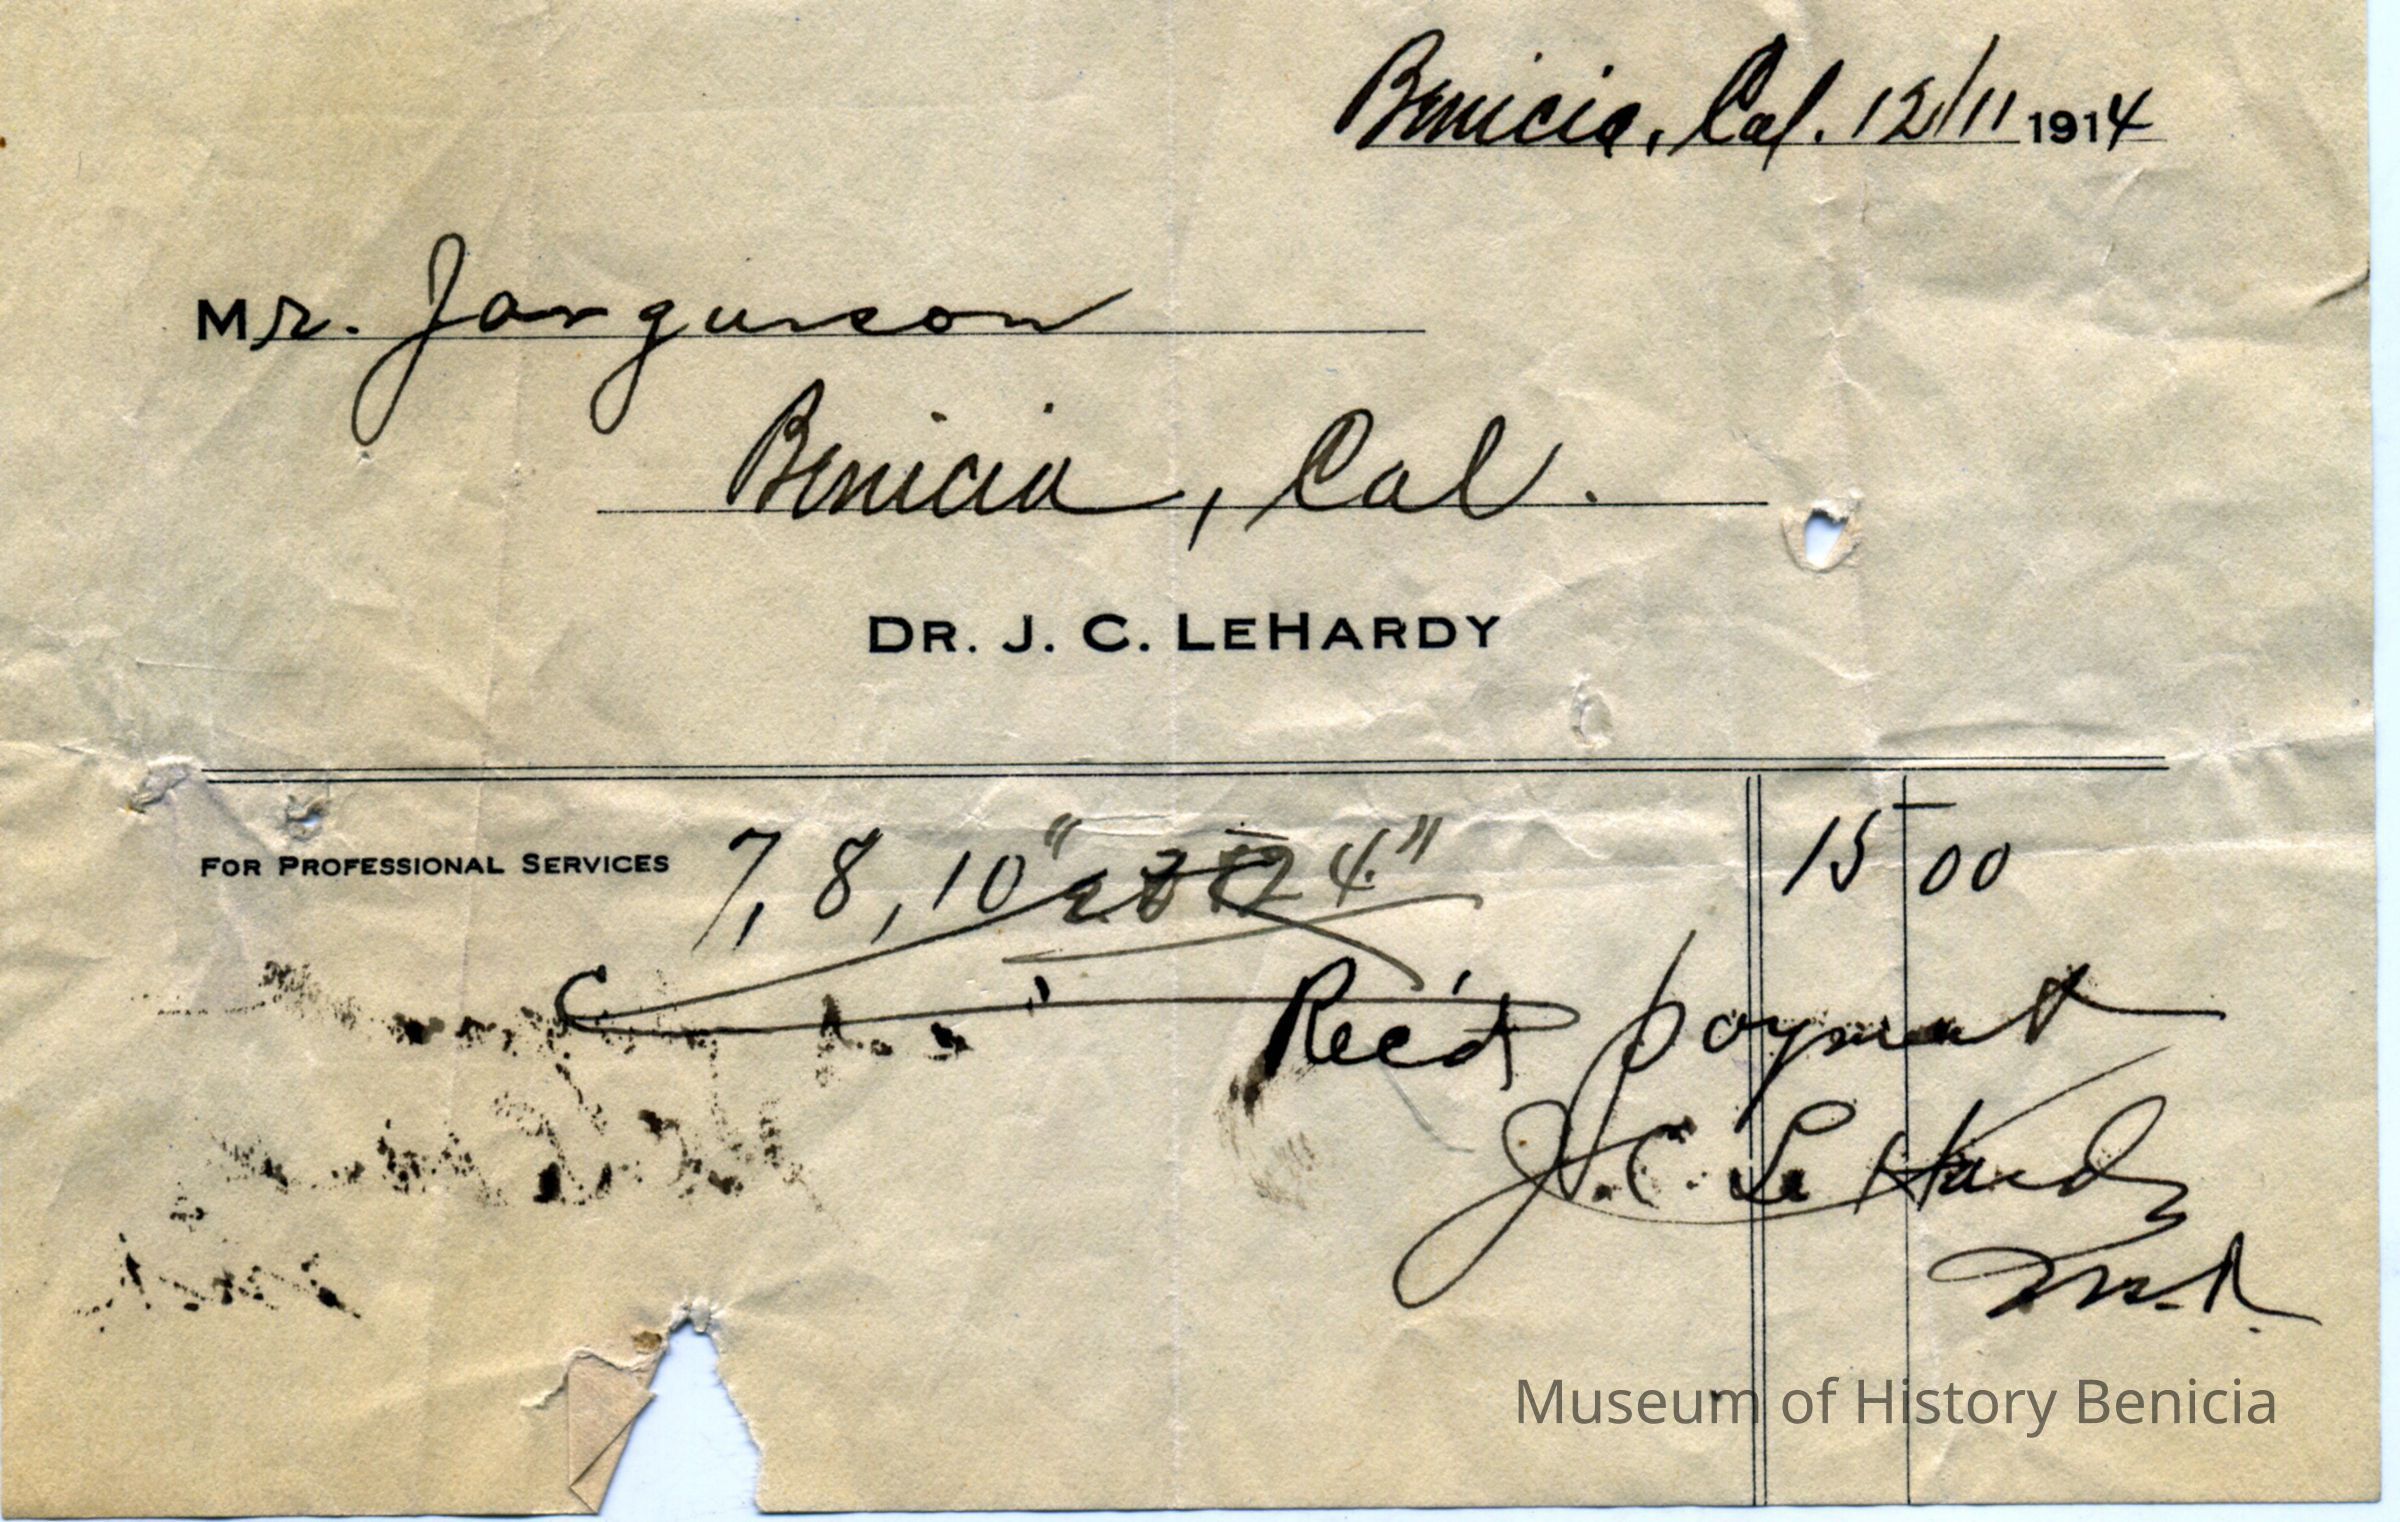 Benicia, Cal. 12/11 1914
Mr. Jorgusson
Benicia, Cal.
DR. J. C. LEHARDY
FOR PROFESSIONAL SERVICES 7, 8, 10" 4" 15 00
Rec'd payment
J. C. LeHardy
M.D.
Museum of History Benicia